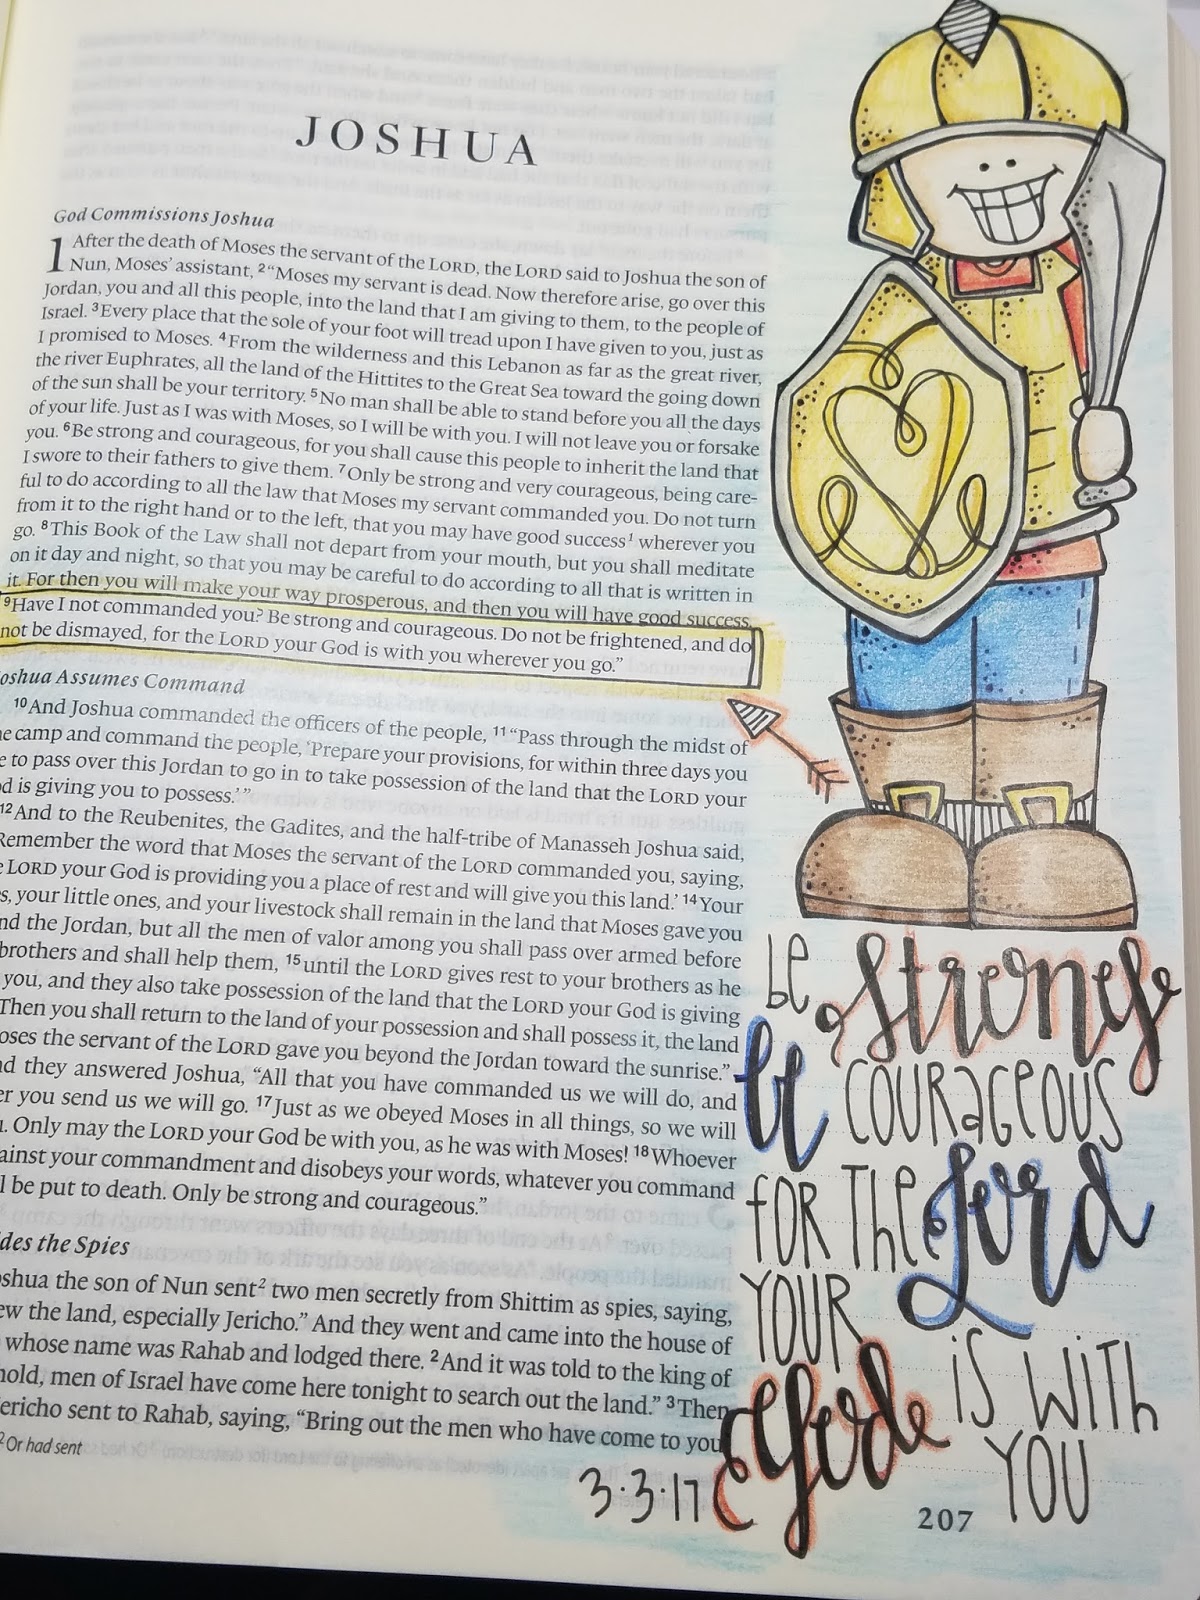 JOSHUA
God Commissions Joshua
1 After the death of Moses the servant of the LORD, the LORD said to Joshua the son of
Nun, Moses’ assistant, 2“Moses my servant is dead. Now therefore arise, go over this
Jordan, you and all this people, into the land that I am giving to them, to the people of
Israel. 3Every place that the sole of your foot will tread upon I have given to you, just as
I promised to Moses. 4From the wilderness and this Lebanon as far as the great river,
the river Euphrates, all the land of the Hittites to the Great Sea toward the going down
of the sun shall be your territory. 5No man shall be able to stand before you all the days
of your life. Just as I was with Moses, so I will be with you. I will not leave you or forsake
you. 6Be strong and courageous, for you shall cause this people to inherit the land that
I swore to their fathers to give them. 7Only be strong and very courageous, being care-
ful to do according to all the law that Moses my servant commanded you. Do not turn
from it to the right hand or to the left, that you may have good success1 wherever you
go. 8This Book of the Law shall not depart from your mouth, but you shall meditate
on it day and night, so that you may be careful to do according to all that is written in
it. For then you will make your way prosperous, and then you will have good success.
9Have I not commanded you? Be strong and courageous. Do not be frightened, and do
not be dismayed, for the LORD your God is with you wherever you go.”
oshua Assumes Command
10And Joshua commanded the officers of the people, 11“Pass through the midst of
e camp and command the people, ‘Prepare your provisions, for within three days you
e to pass over this Jordan to go in to take possession of the land that the LORD your
d is giving you to possess.’”
12And to the Reubenites, the Gadites, and the half-tribe of Manasseh Joshua said,
Remember the word that Moses the servant of the LORD commanded you, saying,
e LORD your God is providing you a place of rest and will give you this land.’ 14Your
s, your little ones, and your livestock shall remain in the land that Moses gave you
nd the Jordan, but all the men of valor among you shall pass over armed before
brothers and shall help them, 15until the LORD gives rest to your brothers as he
you, and they also take possession of the land that the LORD your God is giving
Then you shall return to the land of your possession and shall possess it, the land
oses the servant of the LORD gave you beyond the Jordan toward the sunrise.”
d they answered Joshua, “All that you have commanded us we will do, and
er you send us we will go. 17Just as we obeyed Moses in all things, so we will
. Only may the LORD your God be with you, as he was with Moses! 18Whoever
ainst your commandment and disobeys your words, whatever you command
l be put to death. Only be strong and courageous.”
des the Spies
oshua the son of Nun sent2 two men secretly from Shittim as spies, saying,
ew the land, especially Jericho.” And they went and came into the house of
whose name was Rahab and lodged there. 2And it was told to the king of
hold, men of Israel have come here tonight to search out the land.” 3Then
ericho sent to Rahab, saying, “Bring out the men who have come to you
2Or had sent
be strong
be COURAGEOUS
FOR THE Lord
YOUR
God is WITH
YOU
3·3·17
207